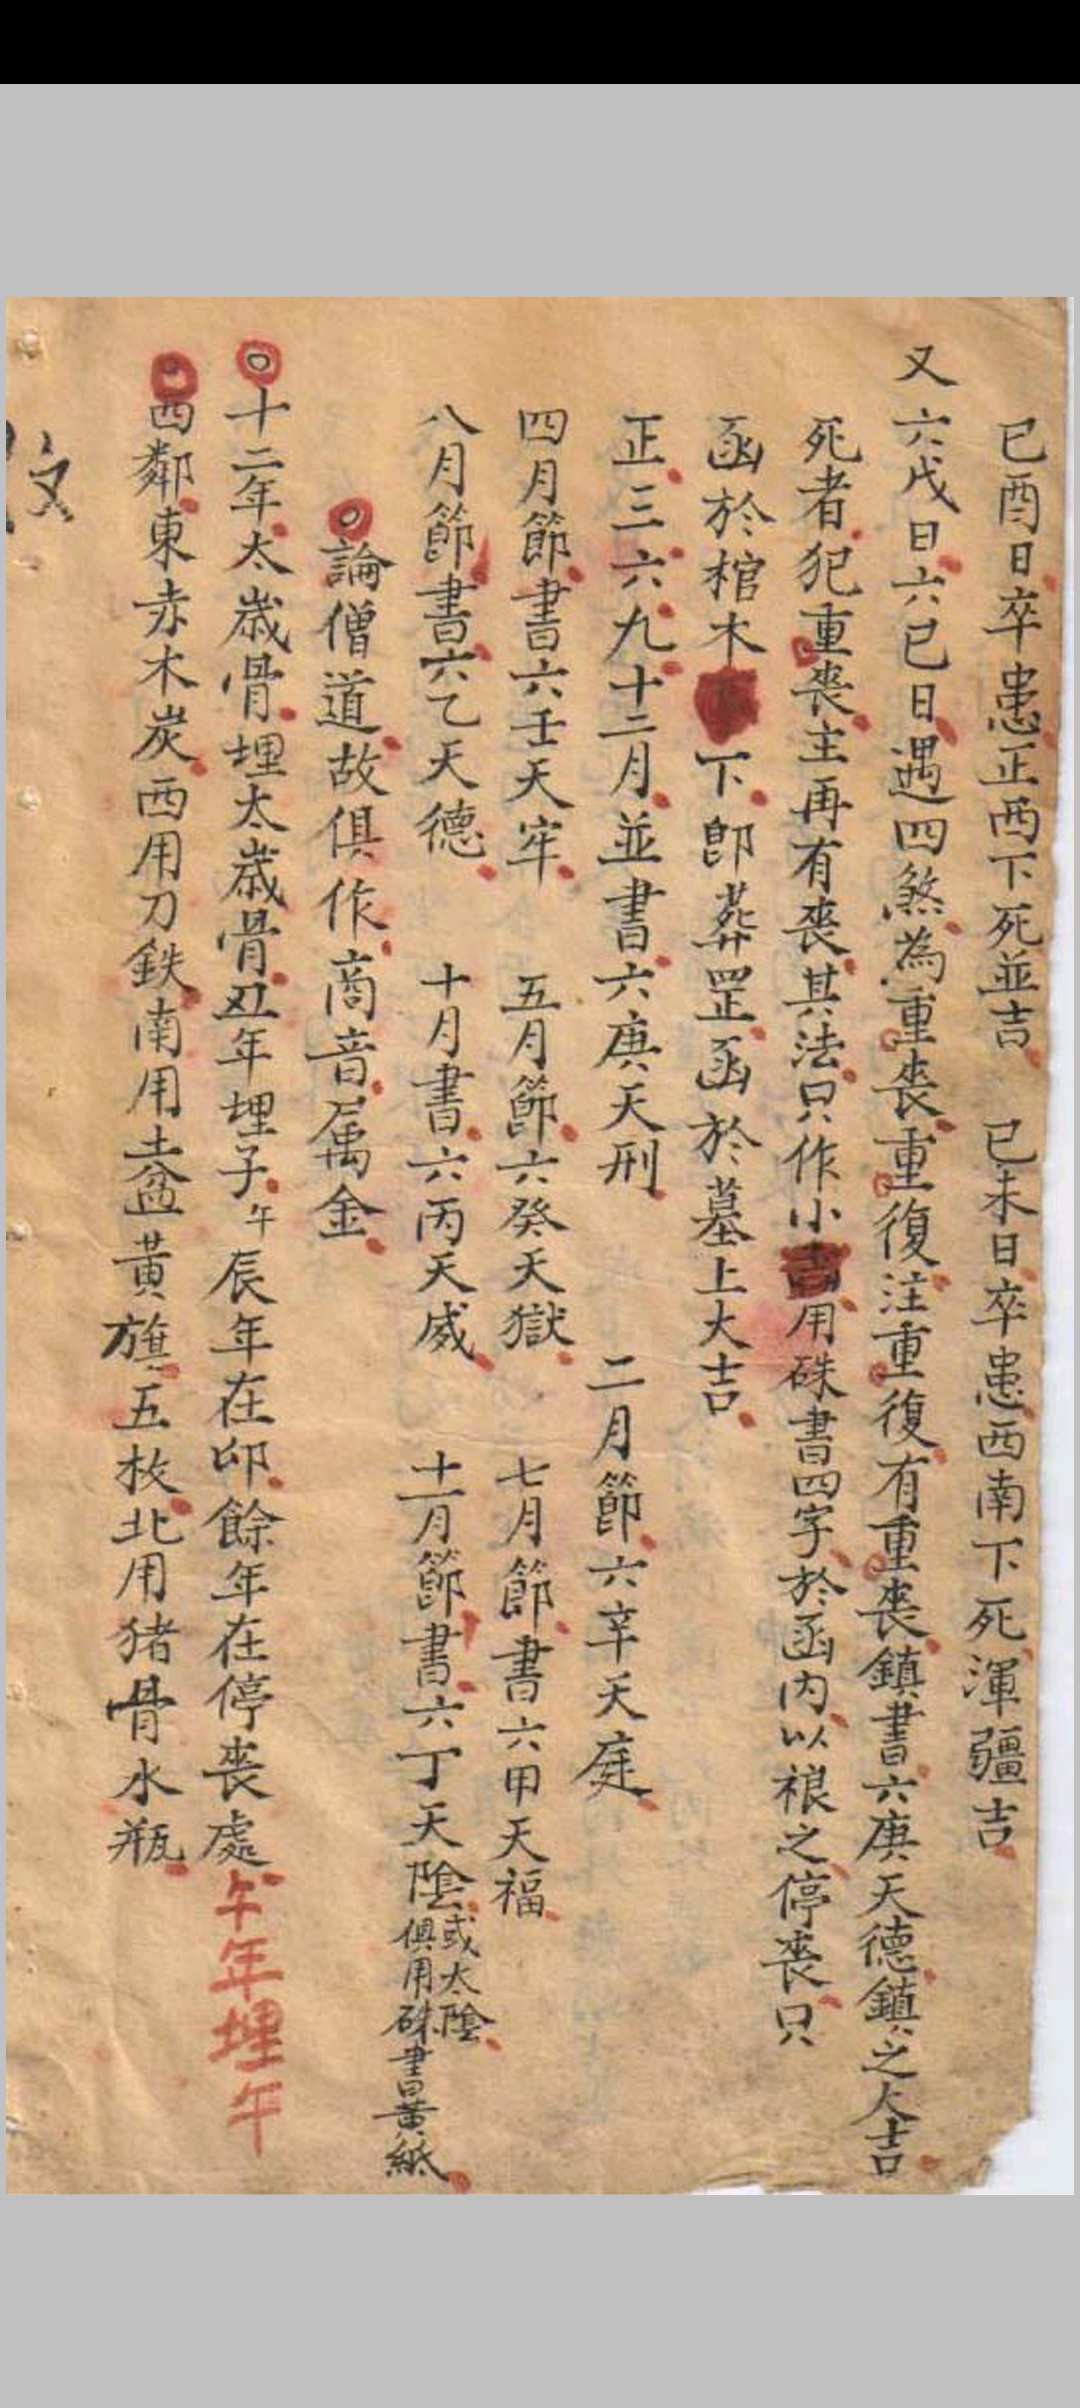 已酉日卒患正西下死並吉　已未日卒患西南下死渾疆吉
又六戊日六已日遇四煞為重喪重復注重復有重喪鎮書六庚天德鎮之大吉
死者犯重喪主再有喪其法只作小用硃書四字於函內以之停喪只
函於棺木下卽葬罡函於墓上大吉
正三六九十二月並書六庚天刑　二月節六辛天庭
四月節書六壬天牢　五月節六癸天獄　七月節書六甲天福
八月節書六乙天德　十月書六丙天威　十一月節書六丁天陰或太陰俱用硃書黃紙
論僧道故俱作商音属金
十二年太歲骨埋太歲骨丑年埋子午辰年在卯餘年在停喪處午年埋午
四鄰東赤木炭西用刀鉄南用土盆黃旗五枚北用猪骨水瓶
文